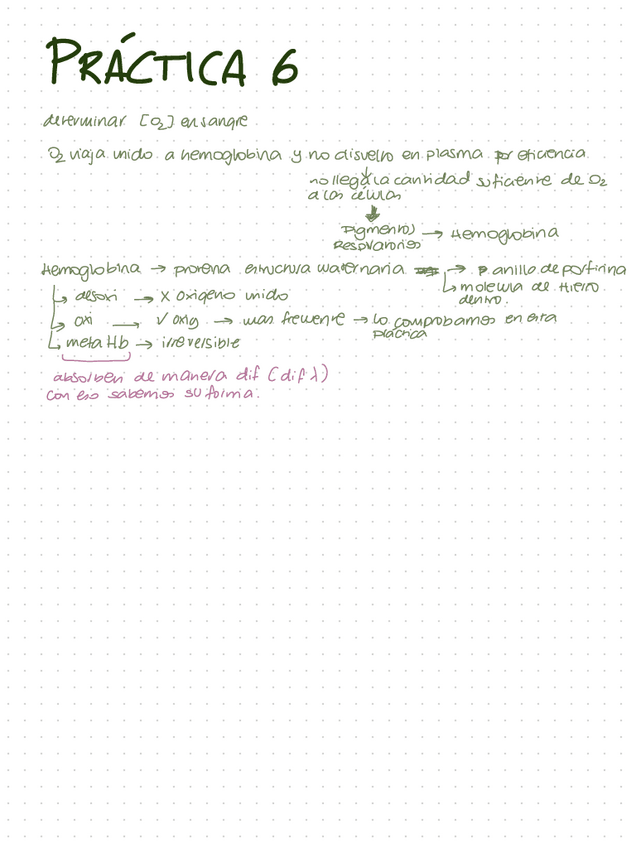 PRÁCTICA 6
determinar [O₂] en sangre
O₂ viaja unido a hemoglobina y no disuelto en plasma por eficiencia
↓
no llega la cantidad suficiente de O₂
a las células
↓
Pigmentos → Hemoglobina
Respiratorios
Hemoglobina → proteína estructura cuaternaria → anillo de porfirina
↳ desoxi → X oxigeno unido
↳ molécula de Hierro
dentro.
↳ oxi → ✓ oxig → mas frecuente → lo comprobamos en esta
práctica
↳ meta Hb → irreversible
absorben de manera dif (dif λ)
con eso sabemos su forma.